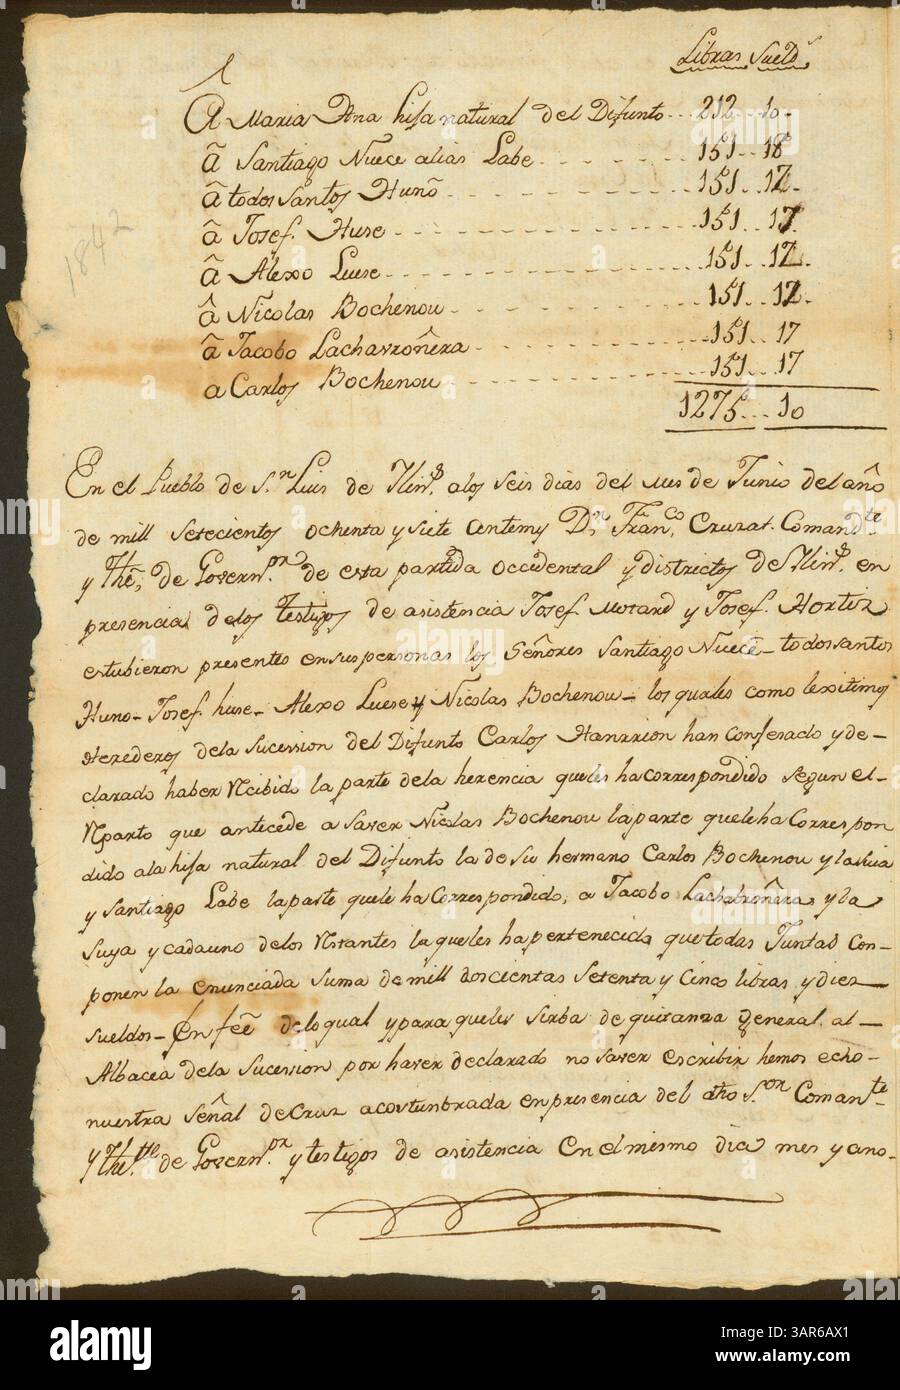 Libras Sueldˢ
A Maria Ana hija natural del Difunto .. 212 .. 10 .
â Santiago Nuece alias Labe . . . . . . 151 .. 18
â todos santos Hunô . . . . . . 151 .. 17 .
â Josef. Huse . . . . . . 151 .. 17
â Alexo Luese . . . . . . 151 .. 17 .
â Nicolas Bochenou . . . . . . 151 .. 17 .
â Jacobo Lacharroñera . . . . . . 151 .. 17
a Carlos Bochenou . . . . . . 151 .. 17
1275 ... 10
1842
En el Pueblo de S.ⁿ Luis de Ylinˢ. alos seis dias del mes de Junio del año
de mill setecientos ochenta y siete Antemy Dⁿ. Franᶜᵒ, Cruzat. Comandᵗᵉ
y Thē, de Governᵒʳ. de esta partida occidental y districtos de Ylinˢ. en
presencia delos testigos de asistencia Josef Motard y Josef. Hortiz
estubieron presentes ensus personas los Señores Santiago Nuecē - todos santos
Huno - Josef. huse - Alexo Luese y Nicolas Bochenou - los quales como lexitimos
Herederos dela sucession del Difunto Carlos Hanrrion han confesado y de-
clarado haber Recibido la parte dela herencia queles ha correspondido segun el-
Reparto que antecede a saver Nicolas Bochenou la parte quele ha Correspon
dido ala hija natural del Difunto la de su hermano Carlos Bochenou y la suia
y Santiago Labe la parte quele ha Correspondido, a Jacobo Lacharroñera y la
suya y cada uno delos Restantes la queles ha pertenecido que todas Juntas Com-
ponen la enunciada suma de mill doscientas setenta y cinco libras y diez
sueldos - En feē delo qual y para queles sirba de quitanza general al -
Albacea dela sucession por haver declarado no saver escribir hemos echo -
nuestra señal de Cruz acostunbrada en presencia del dho S.ᵒʳ Comanᵗᵉ.
y Thē.ᵗᵉ de Governᵒʳ. y testigos de asistencia en el mismo dia mes y ano -
alamy
Image ID: 3AR6AX1
www.alamy.com